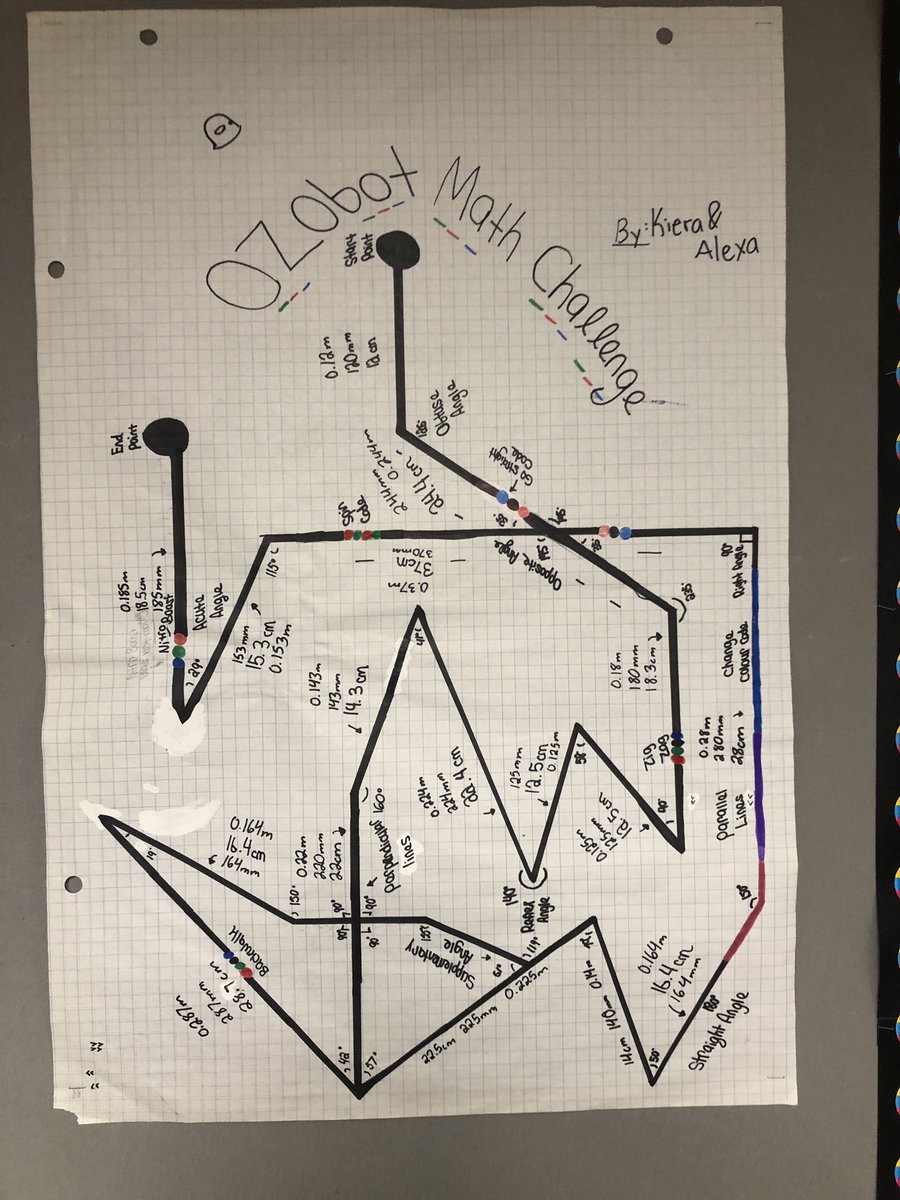 OZObot Math Challenge
By: Kiera &
Alexa
Start
Point
0.12m
120mm
12cm
Obtuse
Angle
GO Straight
Code
End
Point
0.185m
18.5cm
185mm
Nitro
Boost
Acute
Angle
29°
115°
153mm
15.3cm
0.153m
Spin
Code
244mm
0.244m
24.4cm
370mm
37cm
0.37m
Opposite Angle
90°
Right Angle
Change
Colour Code
0.18m
180mm
18.3cm
Zig
Zag
0.28m
280mm
28cm
Parallal
Lines
0.143m
143mm
14.3cm
41°
160°
0.224m
224mm
125mm
12.5cm
0.125m
58°
0.125m
125mm
12.5cm
40°
140°
Reflex
Angle
0.164m
16.4cm
164mm
19°
150°
0.22m
220mm
22cm
Perpendicular
lines
90°
90°
90°
Supplementary
Angle
Backwalk
28.7cm
287mm
0.287m
42°
57°
22.5cm
225mm
0.225m
14cm
140mm
0.14m
50°
0.164m
16.4cm
164mm
180°
Straight Angle